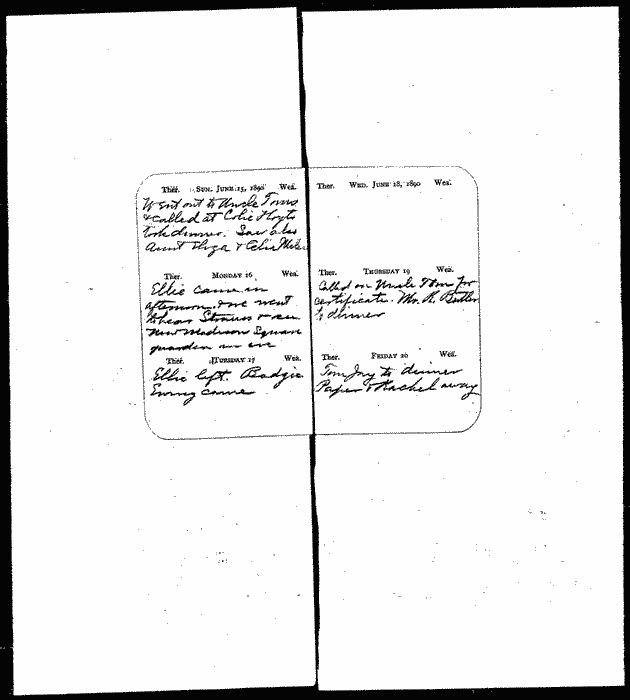 Ther. SUN. JUNE 15, 1890 Wea.
Went out to Uncle Toms
& called at Colie Hoyts
took dinner. Saw also
Aunt Eliza & Celia
Ther. MONDAY 16 Wea.
Ellie came in
afternoon. & we went
to hear Strauss & see
New Madison Square
guarden in eve
Ther. TUESDAY 17 Wea.
Ellie left. Badgie
Ewing came
Ther. WED. JUNE 18, 1890 Wea.
Ther. THURSDAY 19 Wea.
Called on Uncle Tom for
certificate. Mr. R. Butler
to dinner
Ther. FRIDAY 20 Wea.
Tom Jay to dinner
Papa & Rachel away